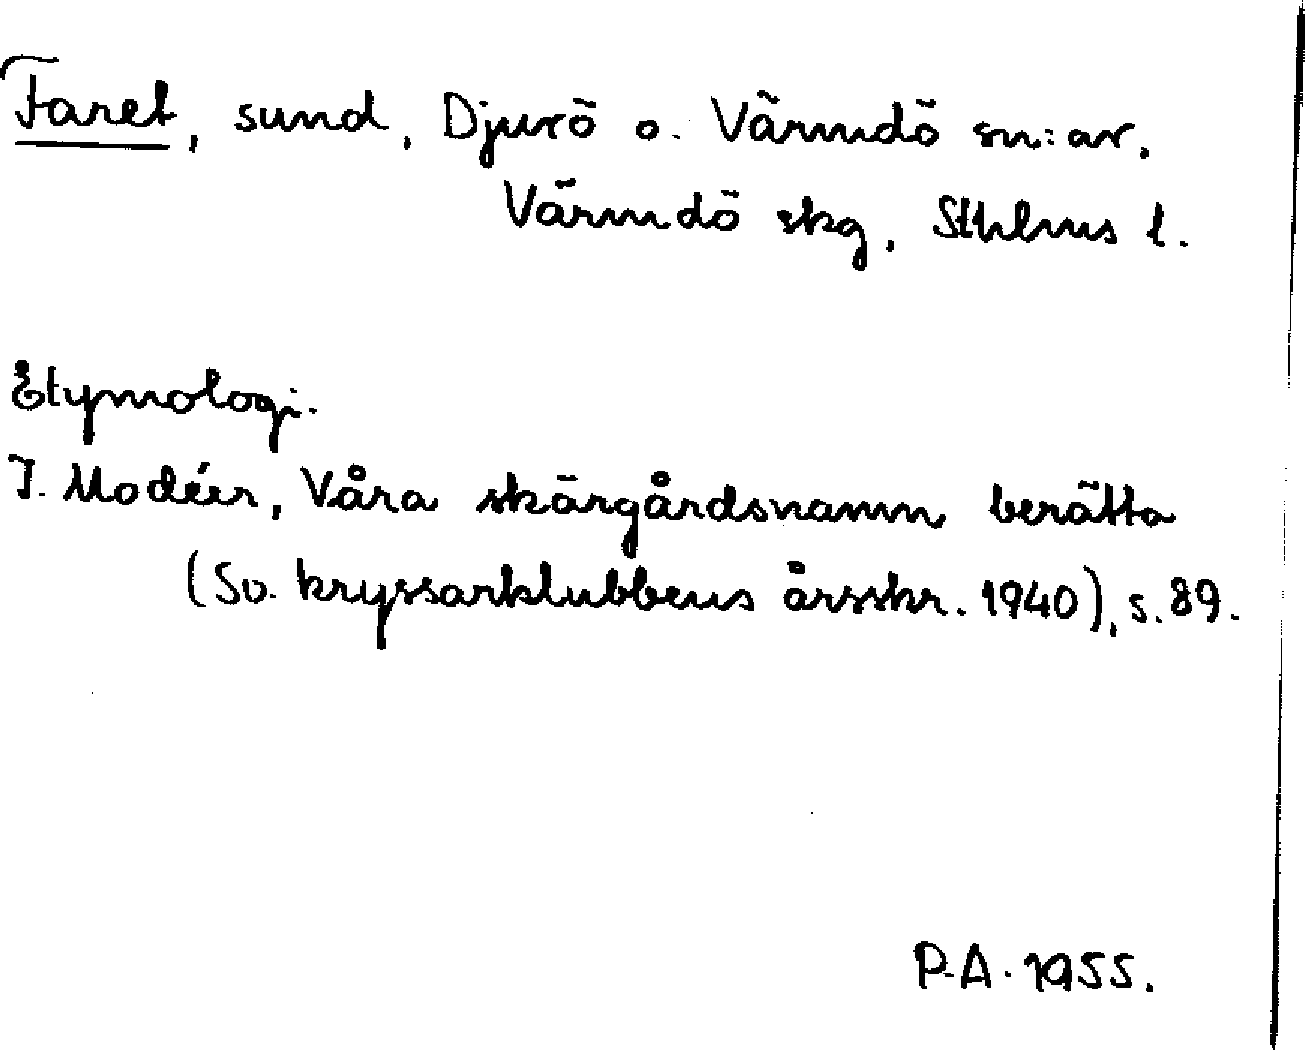 Faret, sund, Djurö o. Värmdö sn:ar.
Värmdö skg, Sthlms l.
Etymologi.
I. Modéer, Våra skärgårdsnamn berätta
(Sv. kryssarklubbens årsskr. 1940), s. 89.
P.A. 1955.